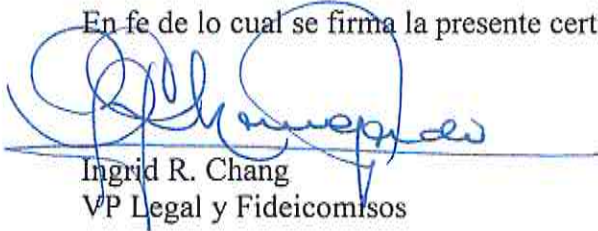 En fe de lo cual se firma la presente cert
Ingrid R. Chang
VP Legal y Fideicomisos